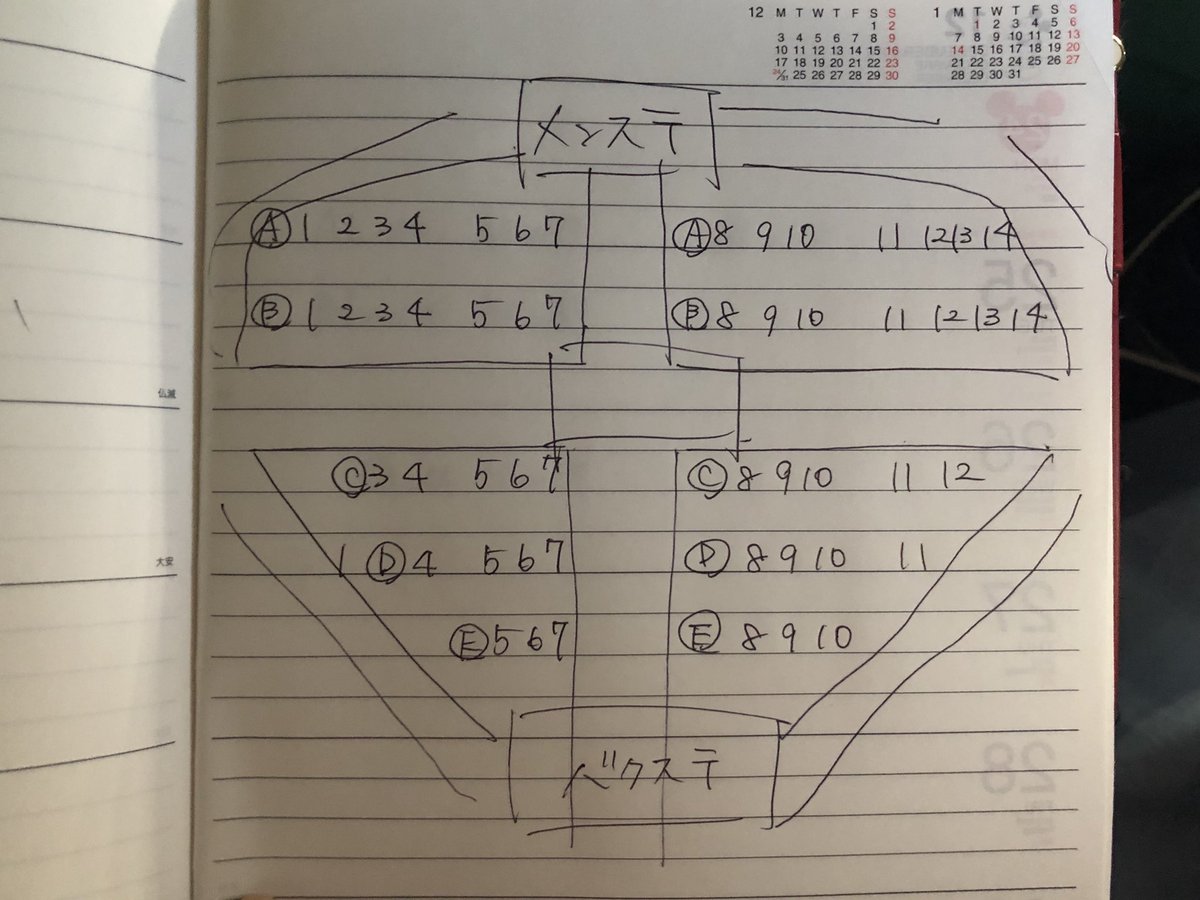 12 M T W T F S S
1 2
3 4 5 6 7 8 9
10 11 12 13 14 15 16
17 18 19 20 21 22 23
24/31 25 26 27 28 29 30
1 M T W T F S S
1 2 3 4 5 6
7 8 9 10 11 12 13
14 15 16 17 18 19 20
21 22 23 24 25 26 27
28 29 30 31
メンステ
Ⓐ 1 2 3 4 5 6 7 Ⓐ 8 9 10 11 12 13 14
Ⓑ 1 2 3 4 5 6 7 Ⓑ 8 9 10 11 12 13 14
仏滅
Ⓒ 3 4 5 6 7 Ⓒ 8 9 10 11 12
大安
1 Ⓓ 4 5 6 7 Ⓓ 8 9 10 11
Ⓔ 5 6 7 Ⓔ 8 9 10
バクステ
25
26
27
28